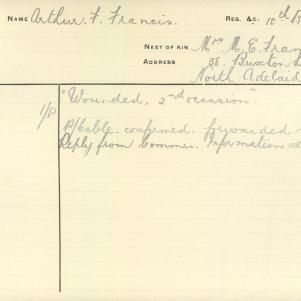 NAME Arthur F. Francis. REG. &C. 10th B
NEXT OF KIN Mrs M. E. Fran
ADDRESS 38. Buxton
North Adelaid
"Wounded, 2nd occasion".
P/Cable confirmed. forwarded
Reply from Commes. Information